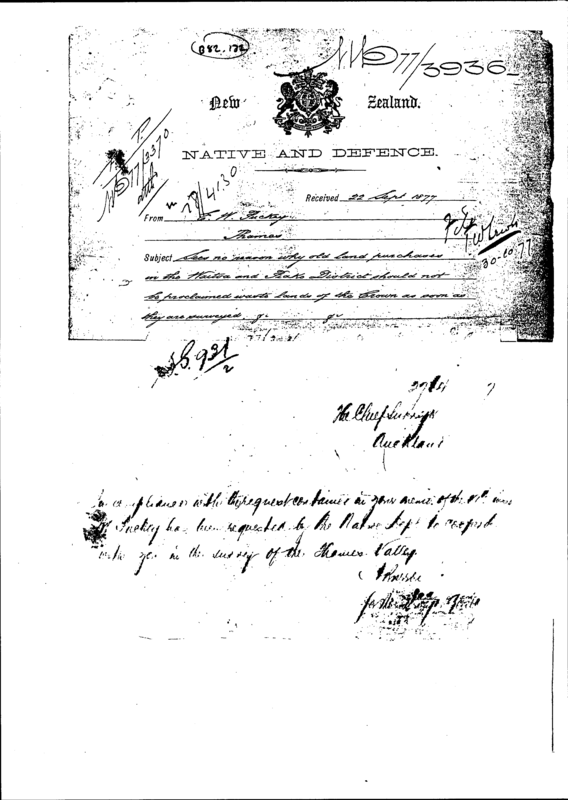 B82. 132
77/3936
New Zealand.
77/3370
NATIVE AND DEFENCE.
78/4130
Received 22 Sept 1877
From E. W. Puckey
Thames
30-10-77
Subject Sees no reason why old land purchases
in the Waitoa and Piako District should not
be proclaimed waste lands of the Crown as soon as
they are surveyed
921/2
The Chief Surveyor
Auckland
In compliance with the request contained in your memo of the
Mr Puckey has been requested by the Native Dept to cooperate
with you in the survey of the Thames Valley